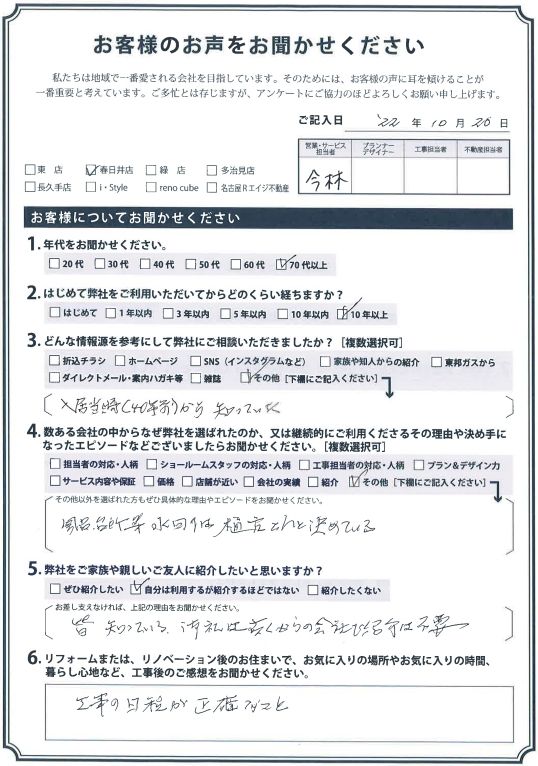 お客様のお声をお聞かせください
私たちは地域で一番愛される会社を目指しています。そのためには、お客様の声に耳を傾けることが
一番重要と考えています。ご多忙とは存じますが、アンケートにご協力のほどよろしくお願い申し上げます。
ご記入日 '22 年 10 月 26 日
営業・サービス担当者 プランナーデザイナー 工事担当者 不動産担当者
今林
東 店 春日井店 緑 店 多治見店
長久手店 i・Style reno cube 名古屋Rエイジ不動産
お客様についてお聞かせください
1. 年代をお聞かせください。
20代 30代 40代 50代 60代 70代以上
2. はじめて弊社をご利用いただいてからどのくらい経ちますか？
はじめて 1年以内 3年以内 5年以内 10年以内 10年以上
3. どんな情報源を参考にして弊社にご相談いただきましたか？［複数選択可］
折込チラシ ホームページ SNS（インスタグラムなど） 家族や知人からの紹介 東邦ガスから
ダイレクトメール・案内ハガキ等 雑誌 その他［下欄にご記入ください］
入居当時(40年前)から 知っていた
4. 数ある会社の中からなぜ弊社を選ばれたのか、又は継続的にご利用くださるその理由や決め手に
なったエピソードなどございましたらお聞かせください。［複数選択可］
担当者の対応・人柄 ショールームスタッフの対応・人柄 工事担当者の対応・人柄 プラン＆デザイン力
サービス内容や保証 価格 店舗が近い 会社の実績 紹介 その他［下欄にご記入ください］
その他以外を選ばれた方もぜひ具体的な理由やエピソードをお聞かせください。
風呂、台所等 水回りは と決めている
5. 弊社をご家族や親しいご友人に紹介したいと思いますか？
ぜひ紹介したい 自分は利用するが紹介するほどではない 紹介したくない
お差し支えなければ、上記の理由をお聞かせください。
皆 知っている は古くからの会社で紹介は不要
6. リフォームまたは、リノベーション後のお住まいで、お気に入りの場所やお気に入りの時間、
暮らし心地など、工事後のご感想をお聞かせください。
工事の日程が正確なこと